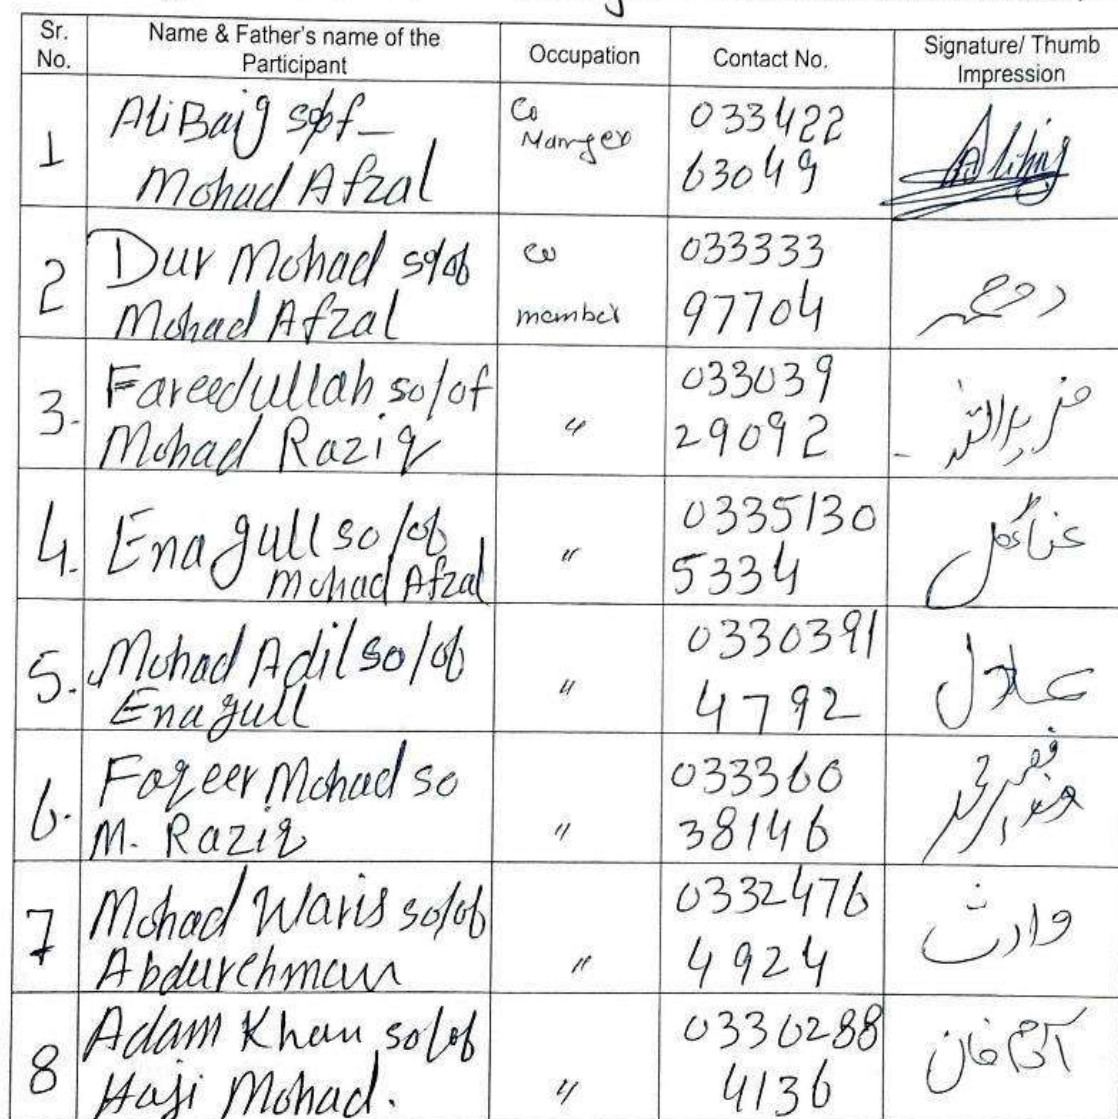 Sr. No.
Name & Father's name of the Participant
Occupation
Contact No.
Signature/ Thumb Impression
1
Ali Baig s/of
Mohad Afzal
Co
Manger
033422
63049
Alibaig
2
Dur Mohad s/of
Mohad Afzal
co
member
033333
97704
3.
Fareedullah so/of
Mohad Raziq
"
033039
29092
فریداللہ
4.
Enagull so/of
Mohad Afzal
"
0335130
5334
عناگل
5.
Mohad Adil so/of
Enagull
"
0330391
4792
عادل
6.
Faqeer Mohad so
M. Raziq
"
033360
38146
فقیر محمد
7
Mohad Waris so/of
Abdurehman
"
0332476
4924
وارث
8
Adam Khan so/of
Haji Mohad.
"
0330288
4136
آدم خان